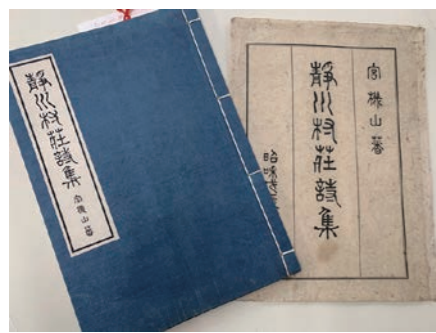 靜川村莊詩集
宫機山著
宫機山著
靜川村莊詩集